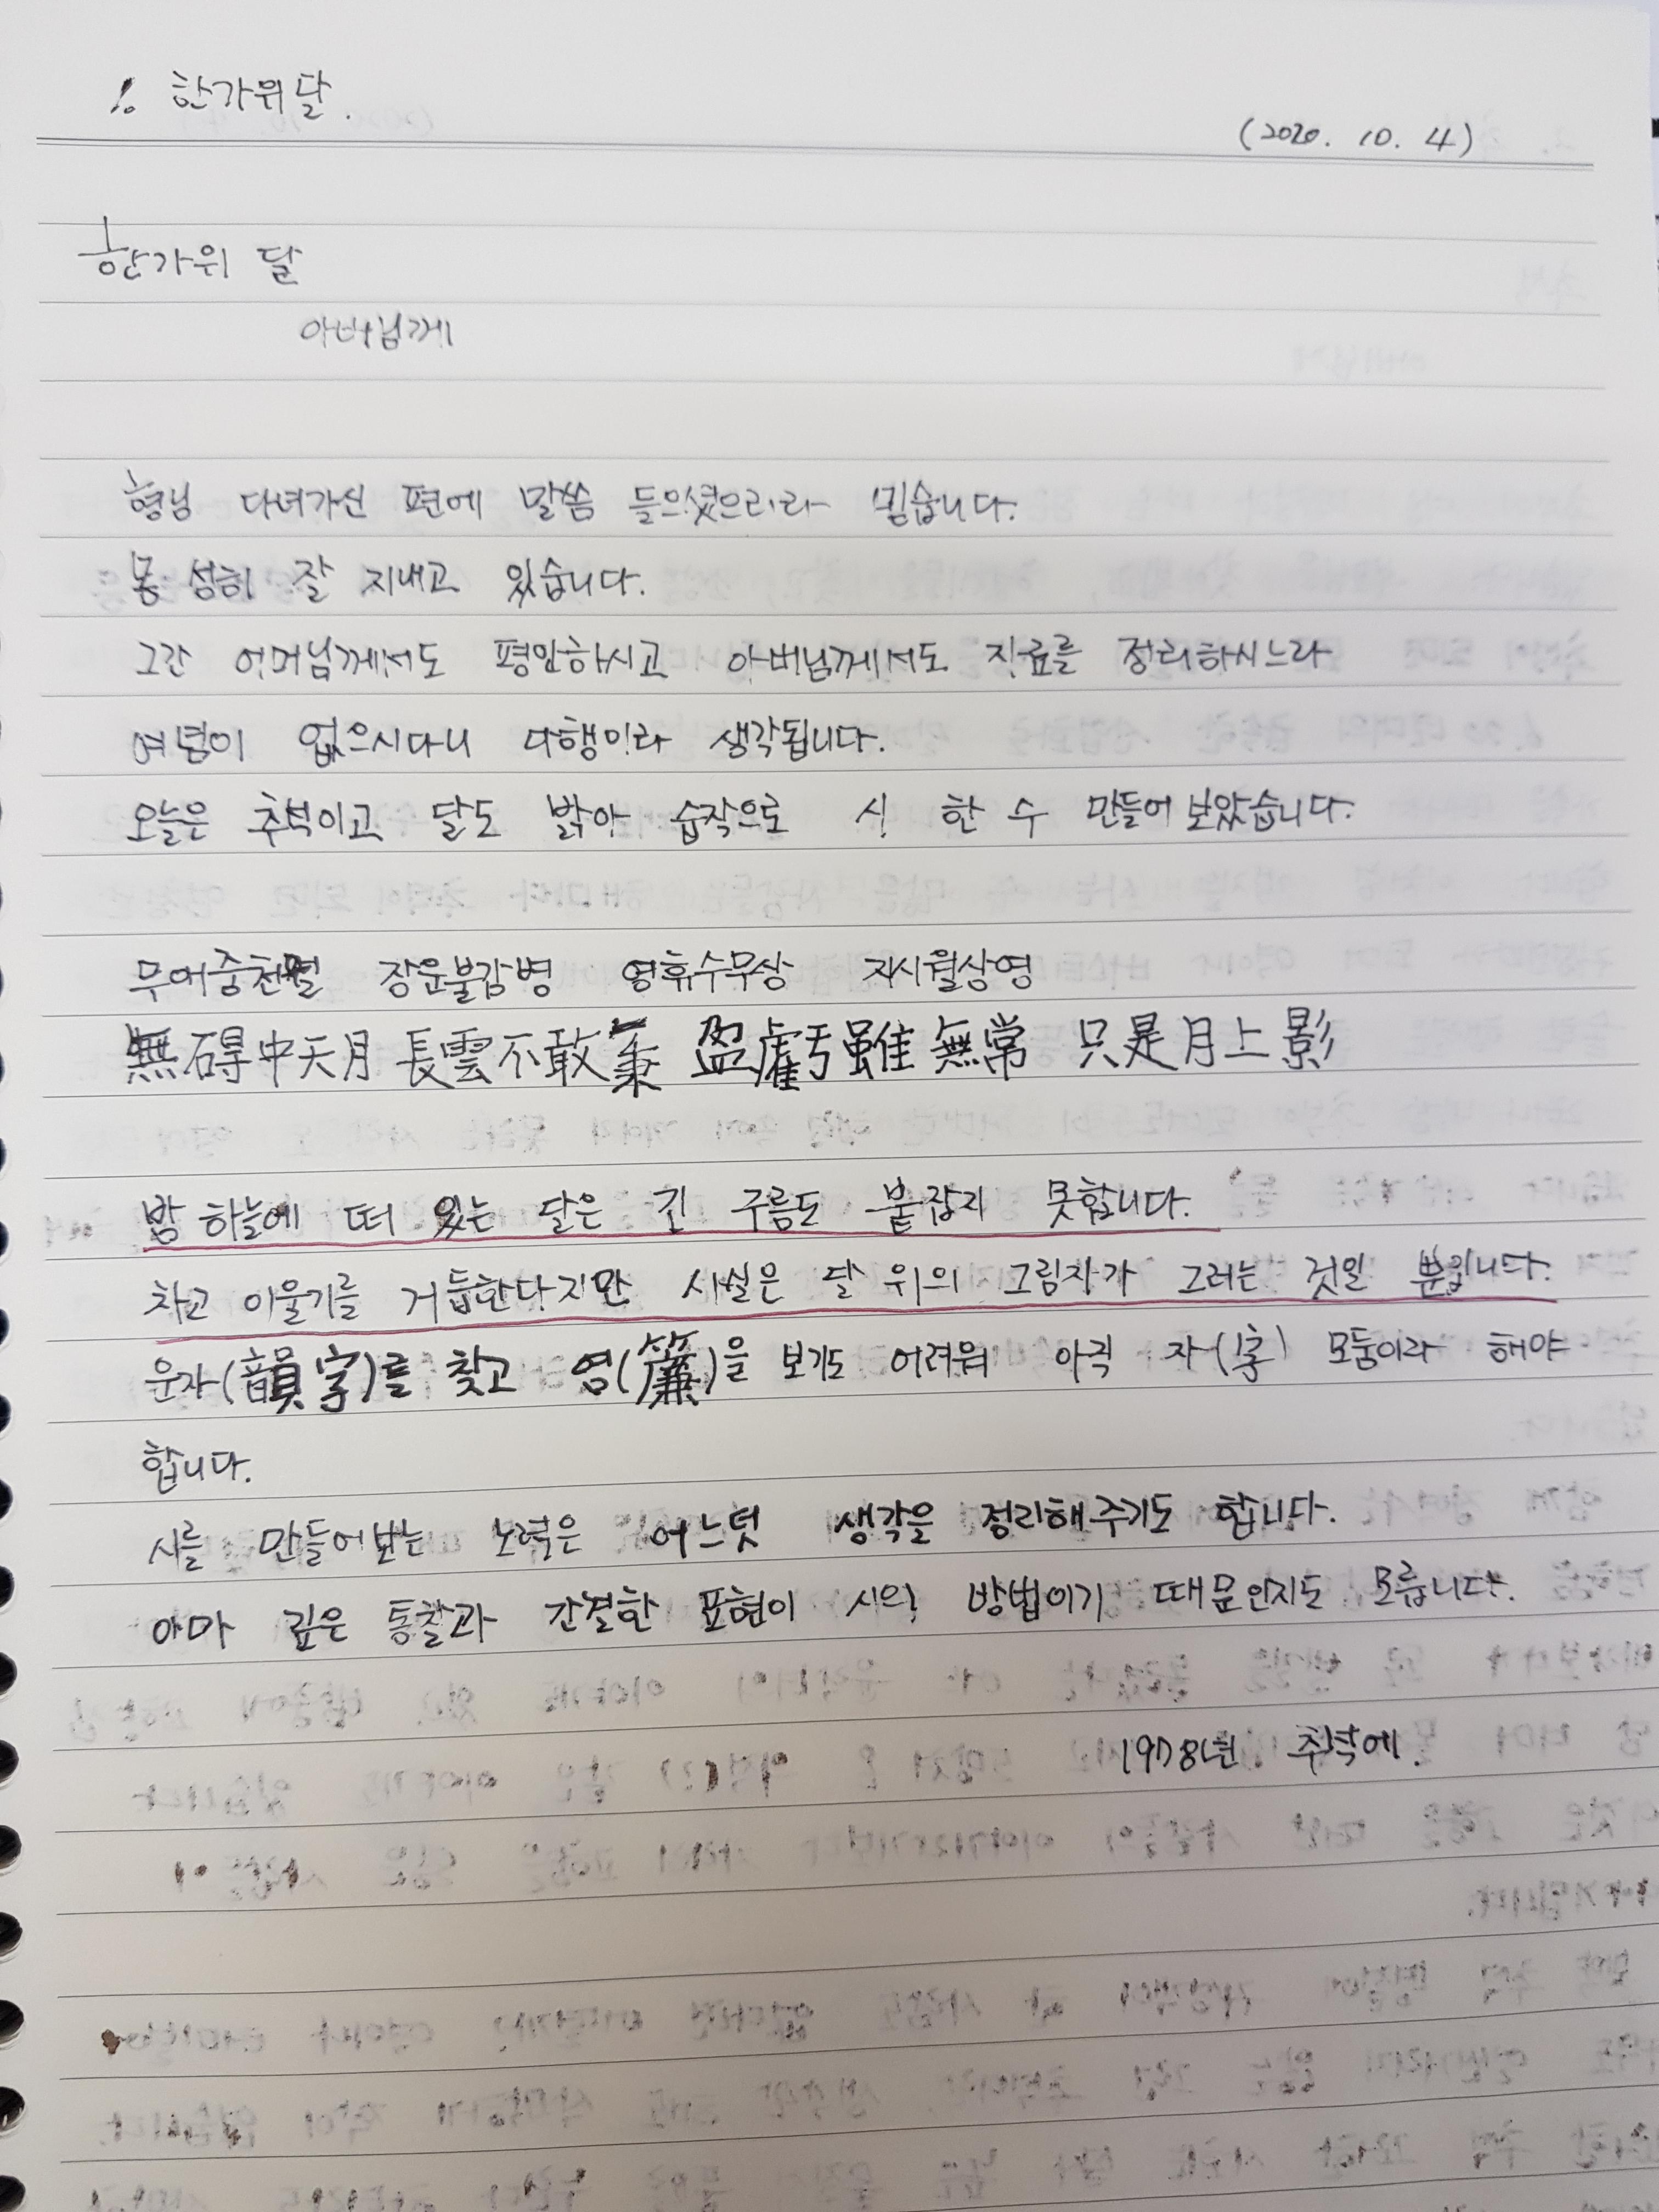 1. 한가위 달.
(2020. 10. 4)
한가위 달
아버님께
형님 다녀가신 편에 말씀 들으셨으리라 믿습니다.
몸 성히 잘 지내고 있습니다.
그간 어머님께서도 평안하시고 아버님께서도 자료를 정리하시느라
여념이 없으시다니 다행이라 생각됩니다.
오늘은 추석이고 달도 밝아 습작으로 시 한 수 만들어 보았습니다.
무애중천월 장운불감병 영휴수무상 지시월상영
無碍中天月 長雲不敢秉 盈虧雖無常 只是月上影
밤 하늘에 떠 있는 달은 긴 구름도 붙잡지 못합니다.
차고 이울기를 거듭한다지만 사실은 달 위의 그림자가 그러는 것일 뿐입니다.
운자(韻字)를 찾고 염(簾)을 보기도 어려워 아직 자(字) 모둠이라 해야
합니다.
시를 만들어보는 노력은 어느덧 생각을 정리해주기도 합니다.
아마 깊은 통찰과 간결한 표현이 시의 방법이기 때문인지도 모릅니다.
1978년 추석에.